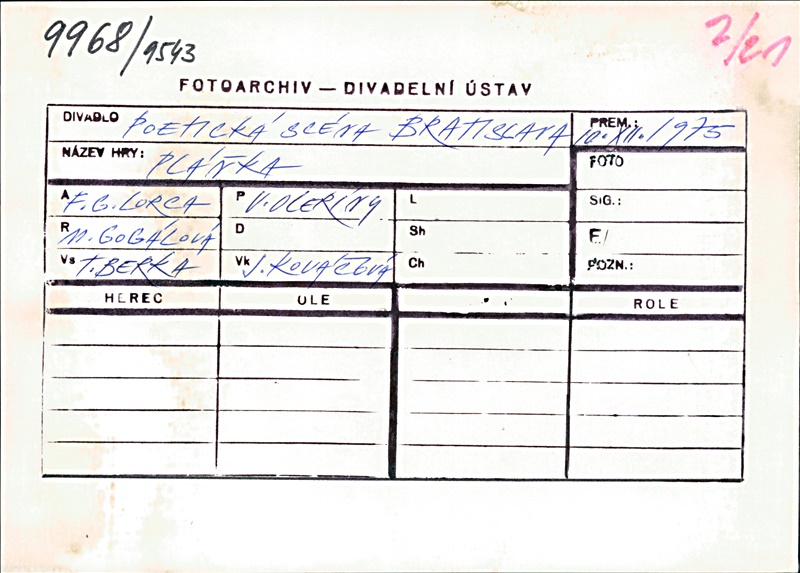 9968/9543
2/21
FOTOARCHIV — DIVADELNÍ ÚSTAV
DIVADLO POETICKÁ SCÉNA BRATISLAVA PREM.: 10.XII.1975
NÁZEV HRY: PLÁNKA FOTO
A F.G. LORCA P V. OLERÍNY L SIG.:
R M. GOGÁLOVÁ D Sh F/
Vs T. BERKA Vk J. KOVÁČOVÁ Ch POZN.:
HEREC OLE ROLE